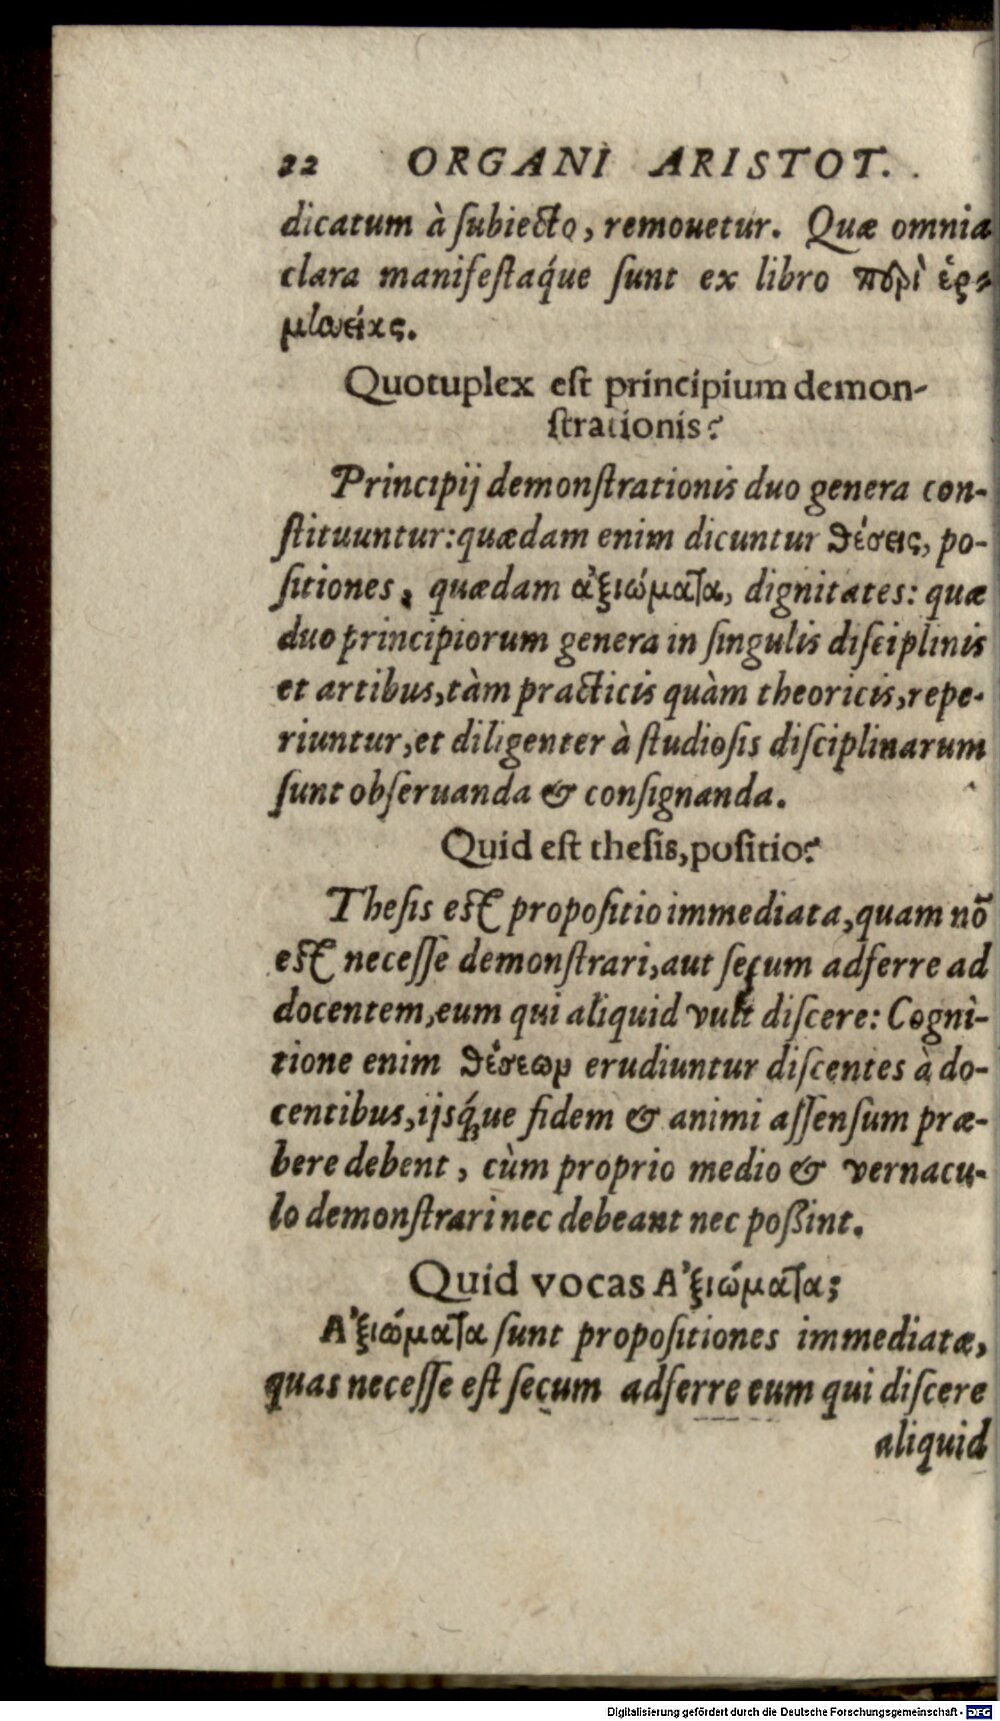 22 ORGANI ARISTOT.
dicatum à ſubiecto, remouetur. Quæ omnia
clara manifeſtaq́ue ſunt ex libro περὶ ἑρ-
μηνείας.
Quotuplex eſt principium demon-
ſtrationis?
Principij demonſtrationis duo genera con-
ſtituuntur: quædam enim dicuntur θέσεις, po-
ſitiones, quædam ἀξιώματα, dignitates: quæ
duo principiorum genera in ſingulis diſciplinis
et artibus, tàm practicis quàm theoricis, repe-
riuntur, et diligenter à ſtudioſis diſciplinarum
ſunt obſeruanda & conſignanda.
Quid eſt theſis, poſitio?
Theſis eſt propoſitio immediata, quam nō
eſt neceſſè demonſtrari, aut ſecum adferre ad
docentem, eum qui aliquid vult diſcere: Cogni-
tione enim θέσεων erudiuntur diſcentes à do-
centibus, ijsq́ue fidem & animi aſſenſum præ-
bere debent, cùm proprio medio & vernacu-
lo demonſtrari nec debeant nec poßint.
Quid vocas Ἀξιώματα;
Ἀξιώματα ſunt propoſitiones immediatæ,
quas neceſſe eſt ſecum adferre eum qui diſcere
aliquid
Digitalisierung gefördert durch die Deutsche Forschungsgemeinschaft - DFG